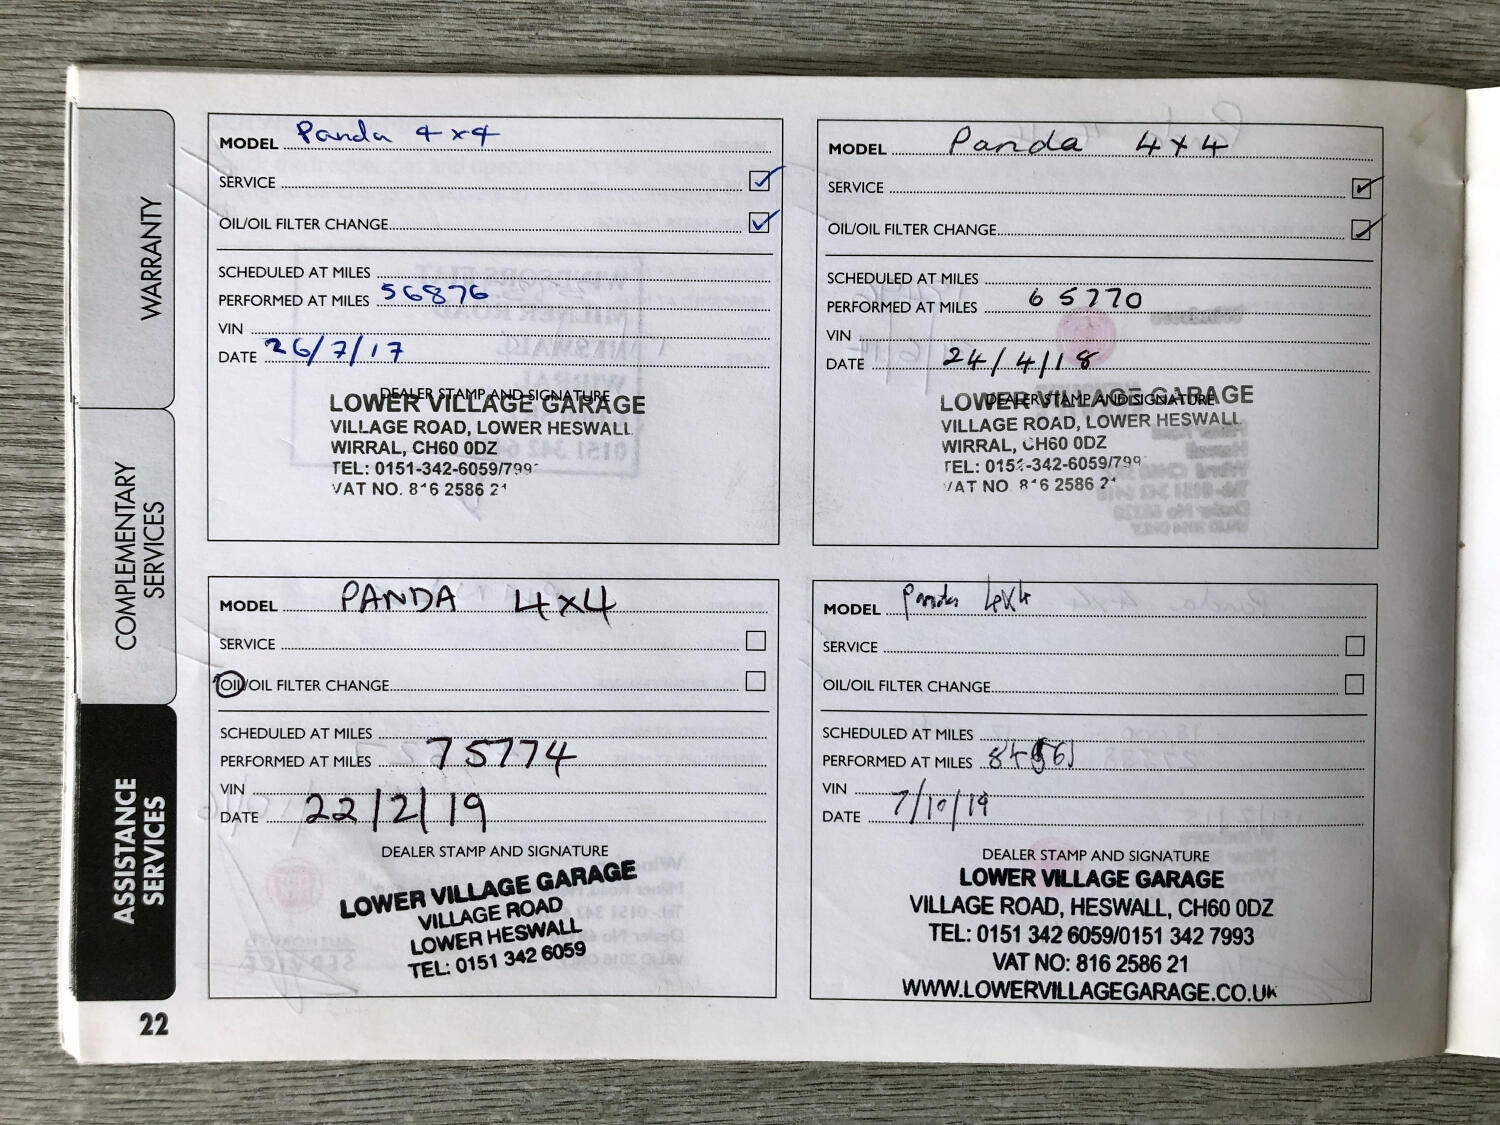 WARRANTY
COMPLEMENTARY
SERVICES
ASSISTANCE
SERVICES
22
MODEL Panda 4x4
SERVICE ✓
OIL/OIL FILTER CHANGE ✓
SCHEDULED AT MILES
PERFORMED AT MILES 56876
VIN
DATE 26/7/17
DEALER STAMP AND SIGNATURE
LOWER VILLAGE GARAGE
VILLAGE ROAD, LOWER HESWALL
WIRRAL, CH60 0DZ
TEL: 0151-342-6059/799
VAT NO. 816 2586 21
MODEL Panda 4x4
SERVICE ✓
OIL/OIL FILTER CHANGE ✓
SCHEDULED AT MILES
PERFORMED AT MILES 65770
VIN
DATE 24/4/18
DEALER STAMP AND SIGNATURE
LOWER VILLAGE GARAGE
VILLAGE ROAD, LOWER HESWALL
WIRRAL, CH60 0DZ
TEL: 0151-342-6059/799
VAT NO 816 2586 21
MODEL PANDA 4x4
SERVICE
OIL/OIL FILTER CHANGE
SCHEDULED AT MILES
PERFORMED AT MILES 75774
VIN
DATE 22/2/19
DEALER STAMP AND SIGNATURE
LOWER VILLAGE GARAGE
VILLAGE ROAD
LOWER HESWALL
TEL: 0151 342 6059
MODEL Panda 4x4
SERVICE
OIL/OIL FILTER CHANGE
SCHEDULED AT MILES
PERFORMED AT MILES
VIN
DATE 7/10/19
DEALER STAMP AND SIGNATURE
LOWER VILLAGE GARAGE
VILLAGE ROAD, HESWALL, CH60 0DZ
TEL: 0151 342 6059/0151 342 7993
VAT NO: 816 2586 21
WWW.LOWERVILLAGEGARAGE.CO.UK